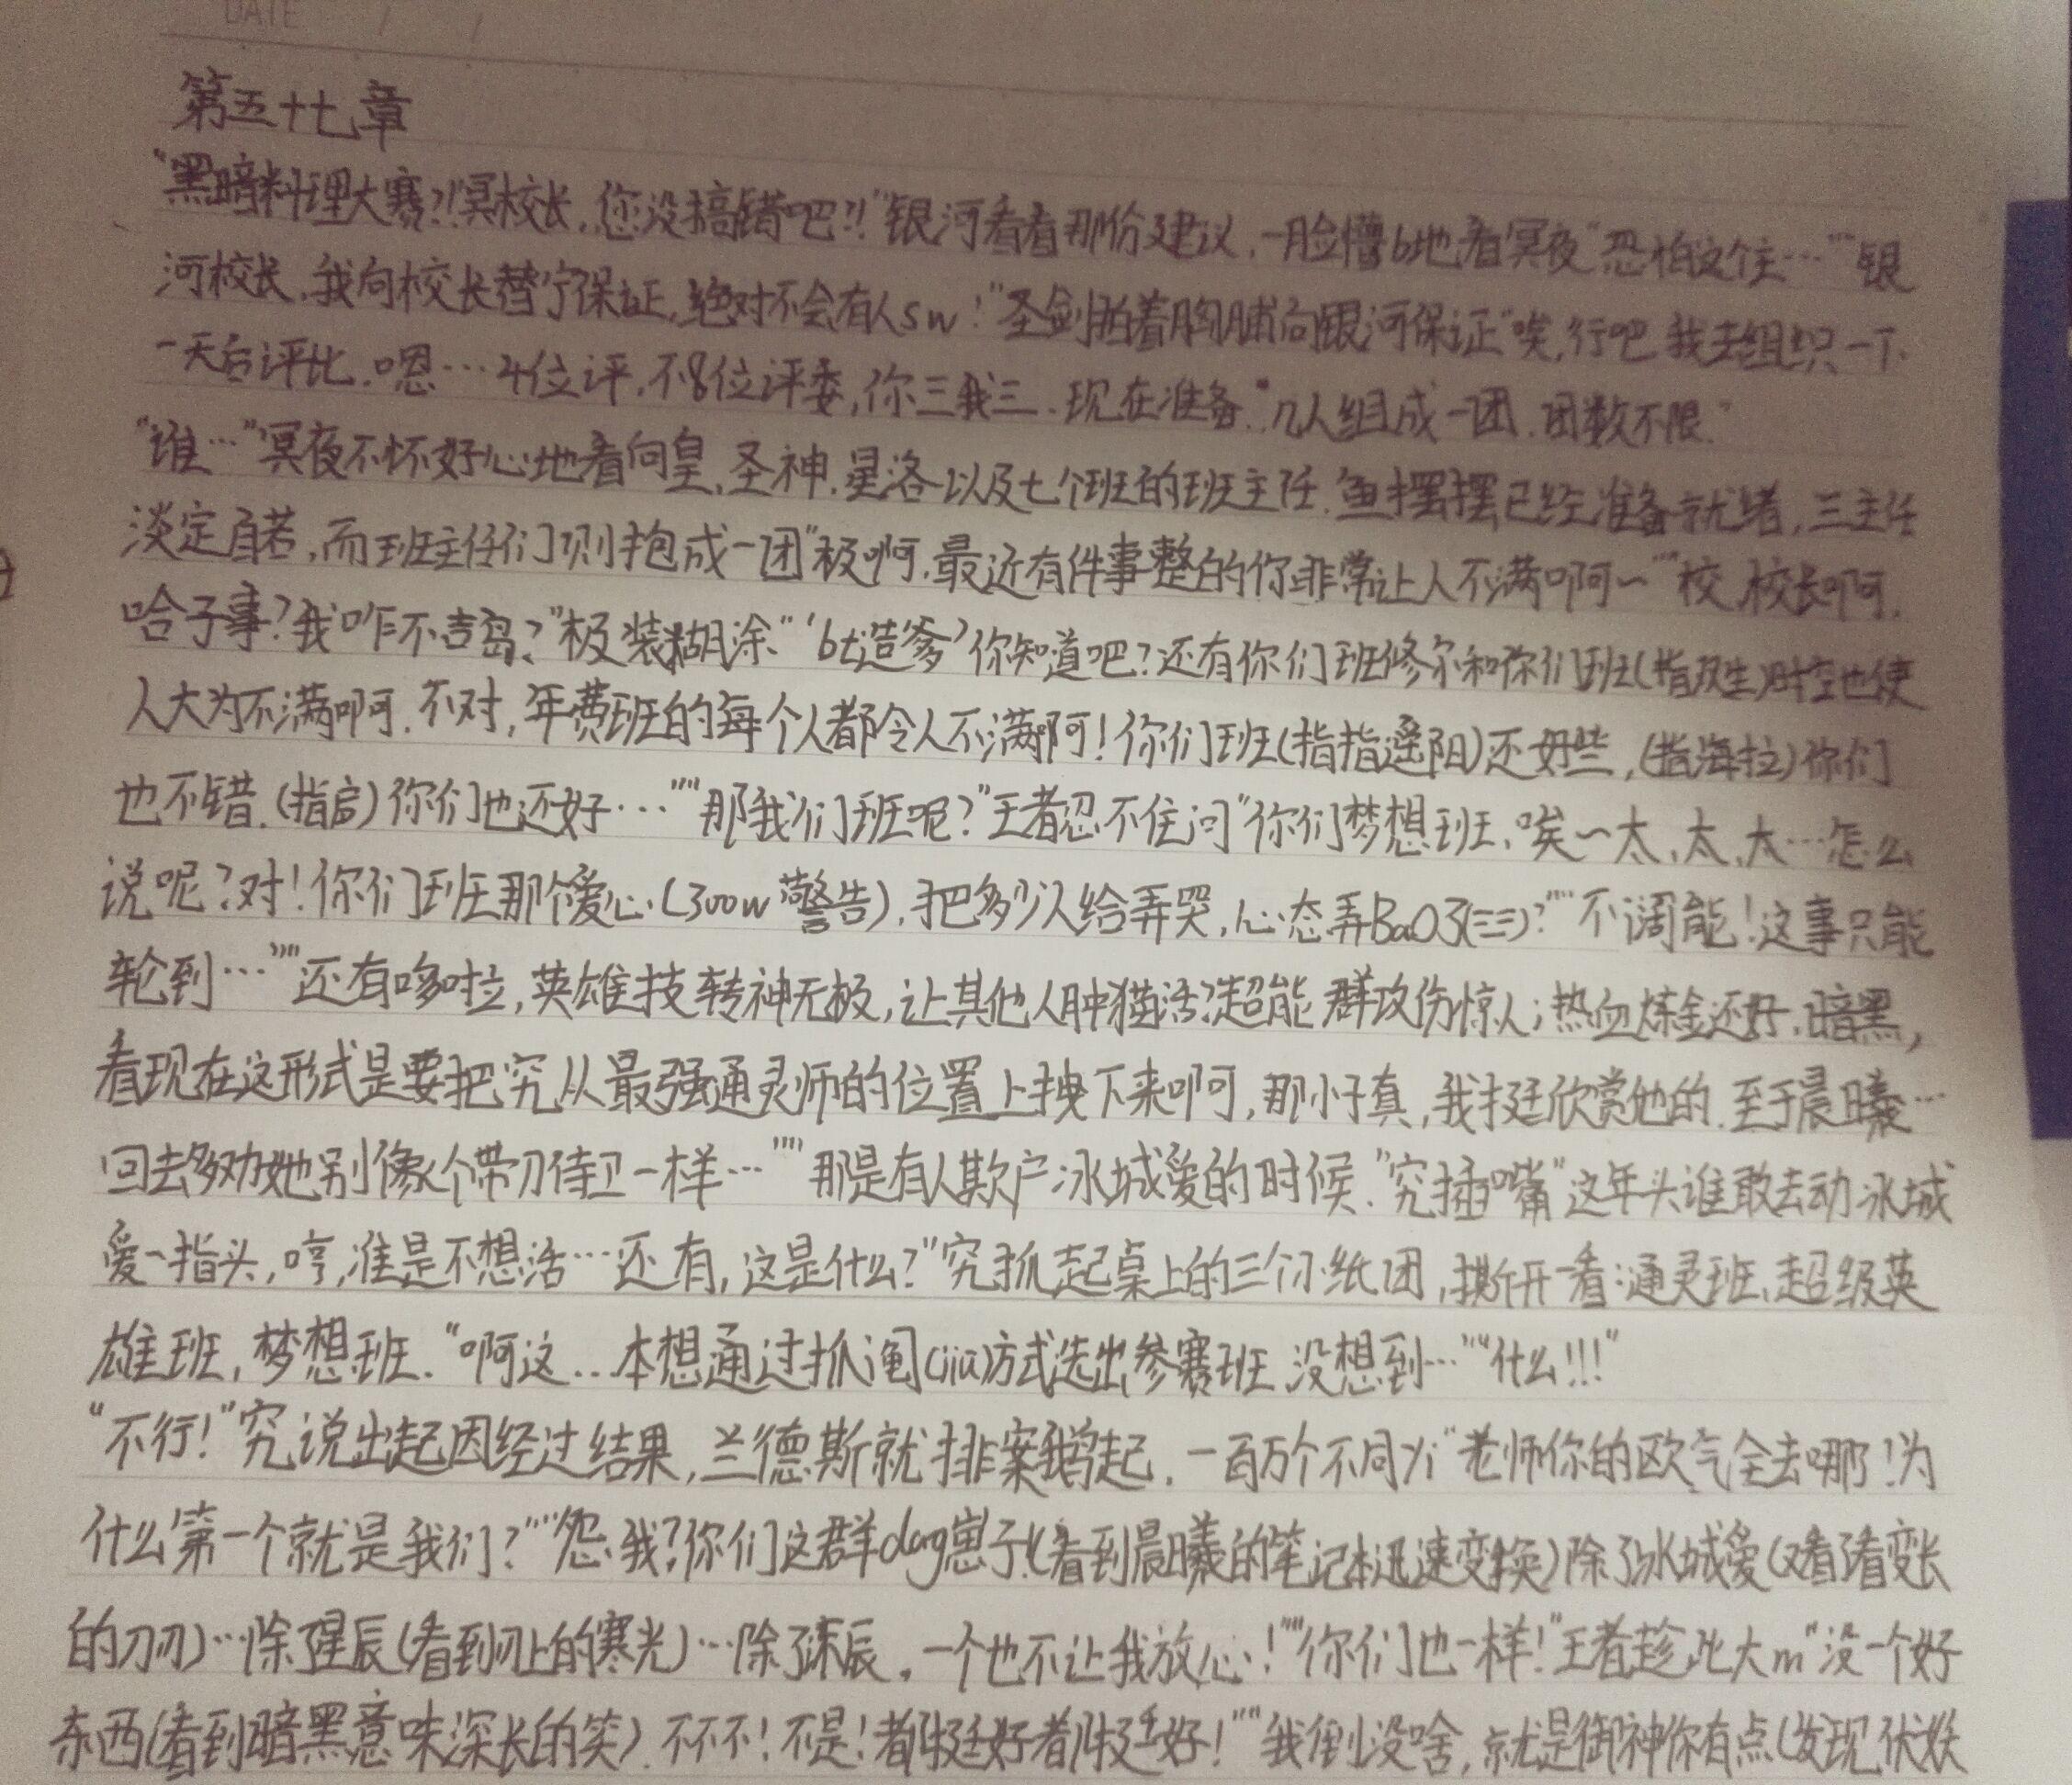 DATE / /
第五十七章
"黑暗料理大赛?!冥校长,您没搞错吧?!"银河看看那份建议,一脸懵b地看冥夜"恐怕这个主…""银
河校长,我向校长替宁保证,绝对不会有人sw!"圣剑拍着胸脯向银河保证"唉,行吧 我去组织一下.
一天后评比.嗯…4位评,不8位评委,你三我三.现在准备.""几人组成一团.团数不限."
"谁…"冥夜不怀好心地看向皇、圣神、星洛以及七个班的班主任.鱼摆摆已经准备就绪,三主任
淡定自若,而班主任们则抱成一团"极啊,最近有件事整的你非常让人不满啊~""校,校长啊.
哈子事?我咋不吉岛?"极装糊涂."'bt造爹'你知道吧?还有你们班修尔和你们班(指及生)时空也使
人大为不满啊.不对,年费班的每个人都令人不满啊!你们班(指指遥阳)还好些,(指海拉)你们
也不错.(指启)你们也还好…""那我们班呢?"王者忍不住问"你们梦想班,唉~太、太、太…怎么
说呢?对!你们班那个爱心(300w警告),把多少人给弄哭,心态弄BaO3(三三)?""不阔能!这事只能
轮到…""还有哆啦,英雄技转神无极,让其他人肿猫活?超能 群攻伤惊人;热血炼金还好.暗黑,
看现在这形式是要把究从最强通灵师的位置上拽下来啊,那小子真,我挺欣赏他的.至于晨曦…
回去多劝她别像个带刀侍卫一样…""那是有人欺户冰城爱的时候."究插嘴"这年头谁敢去动冰城
爱一指头,哼,准是不想活…还有,这是什么?"究抓起桌上的三个小纸团,撕开一看:通灵班、超级英
雄班,梦想班."啊这…本想通过抓阄(jiu)方式选出参赛班 没想到…""什么!!!"
"不行!"究说出起因经过结果,兰德斯就排案鹅起.一百万个不同yi"老师你的欧气全去哪了!为
什么第一个就是我们?""怨我?你们这群dog崽子!(看到晨曦的笔记本迅速变换)除了冰城爱(又看了看变长
的刀刃)…除了星辰(看到刃上的寒光)…除了沫辰.一个也不让我放心!""你们也一样!"王者趁此大m"没一个好
东西(看到暗黑意味深长的笑).不不不!不是!都挺好都挺好!""我倒没啥,就是御神你有点(发现伏妖